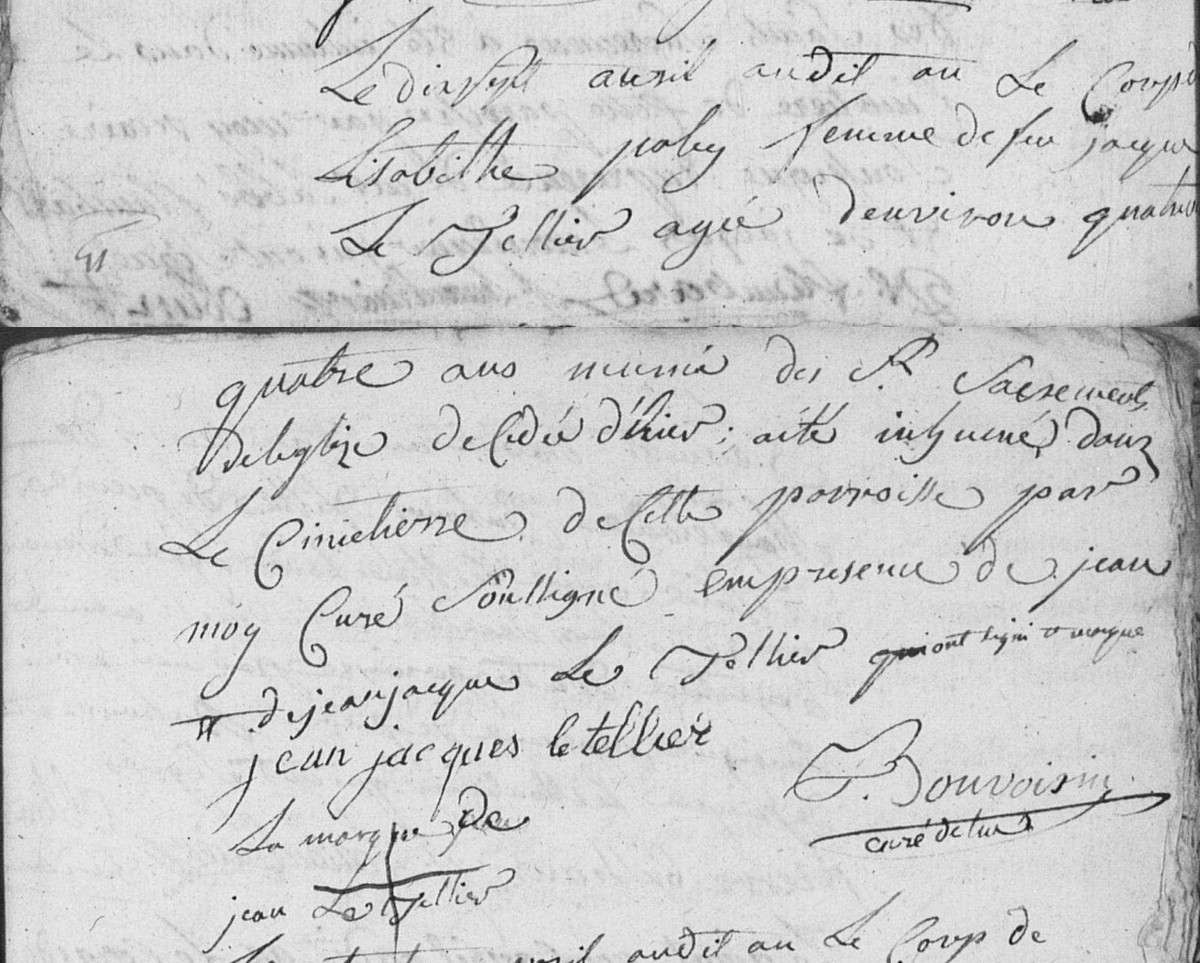 Le dixsept avril audit an Le Corps
Lisabethe poley femme de feu jacque
Le Tellier agée denviron quatre
quatre ans munie des St Sacrements
deleglize decedée d'hier; aété inhumé dans
Le Cimetierre de Cette parroisse par
moy Curé Soussigné empresence de jean
& de jean jacque Le Tellier qui ont signé & marque
jean jacques le tellier
F. Bonvoisin
curé de lu
La marque De
jean Le Tellier
avril audit an Le Corp de